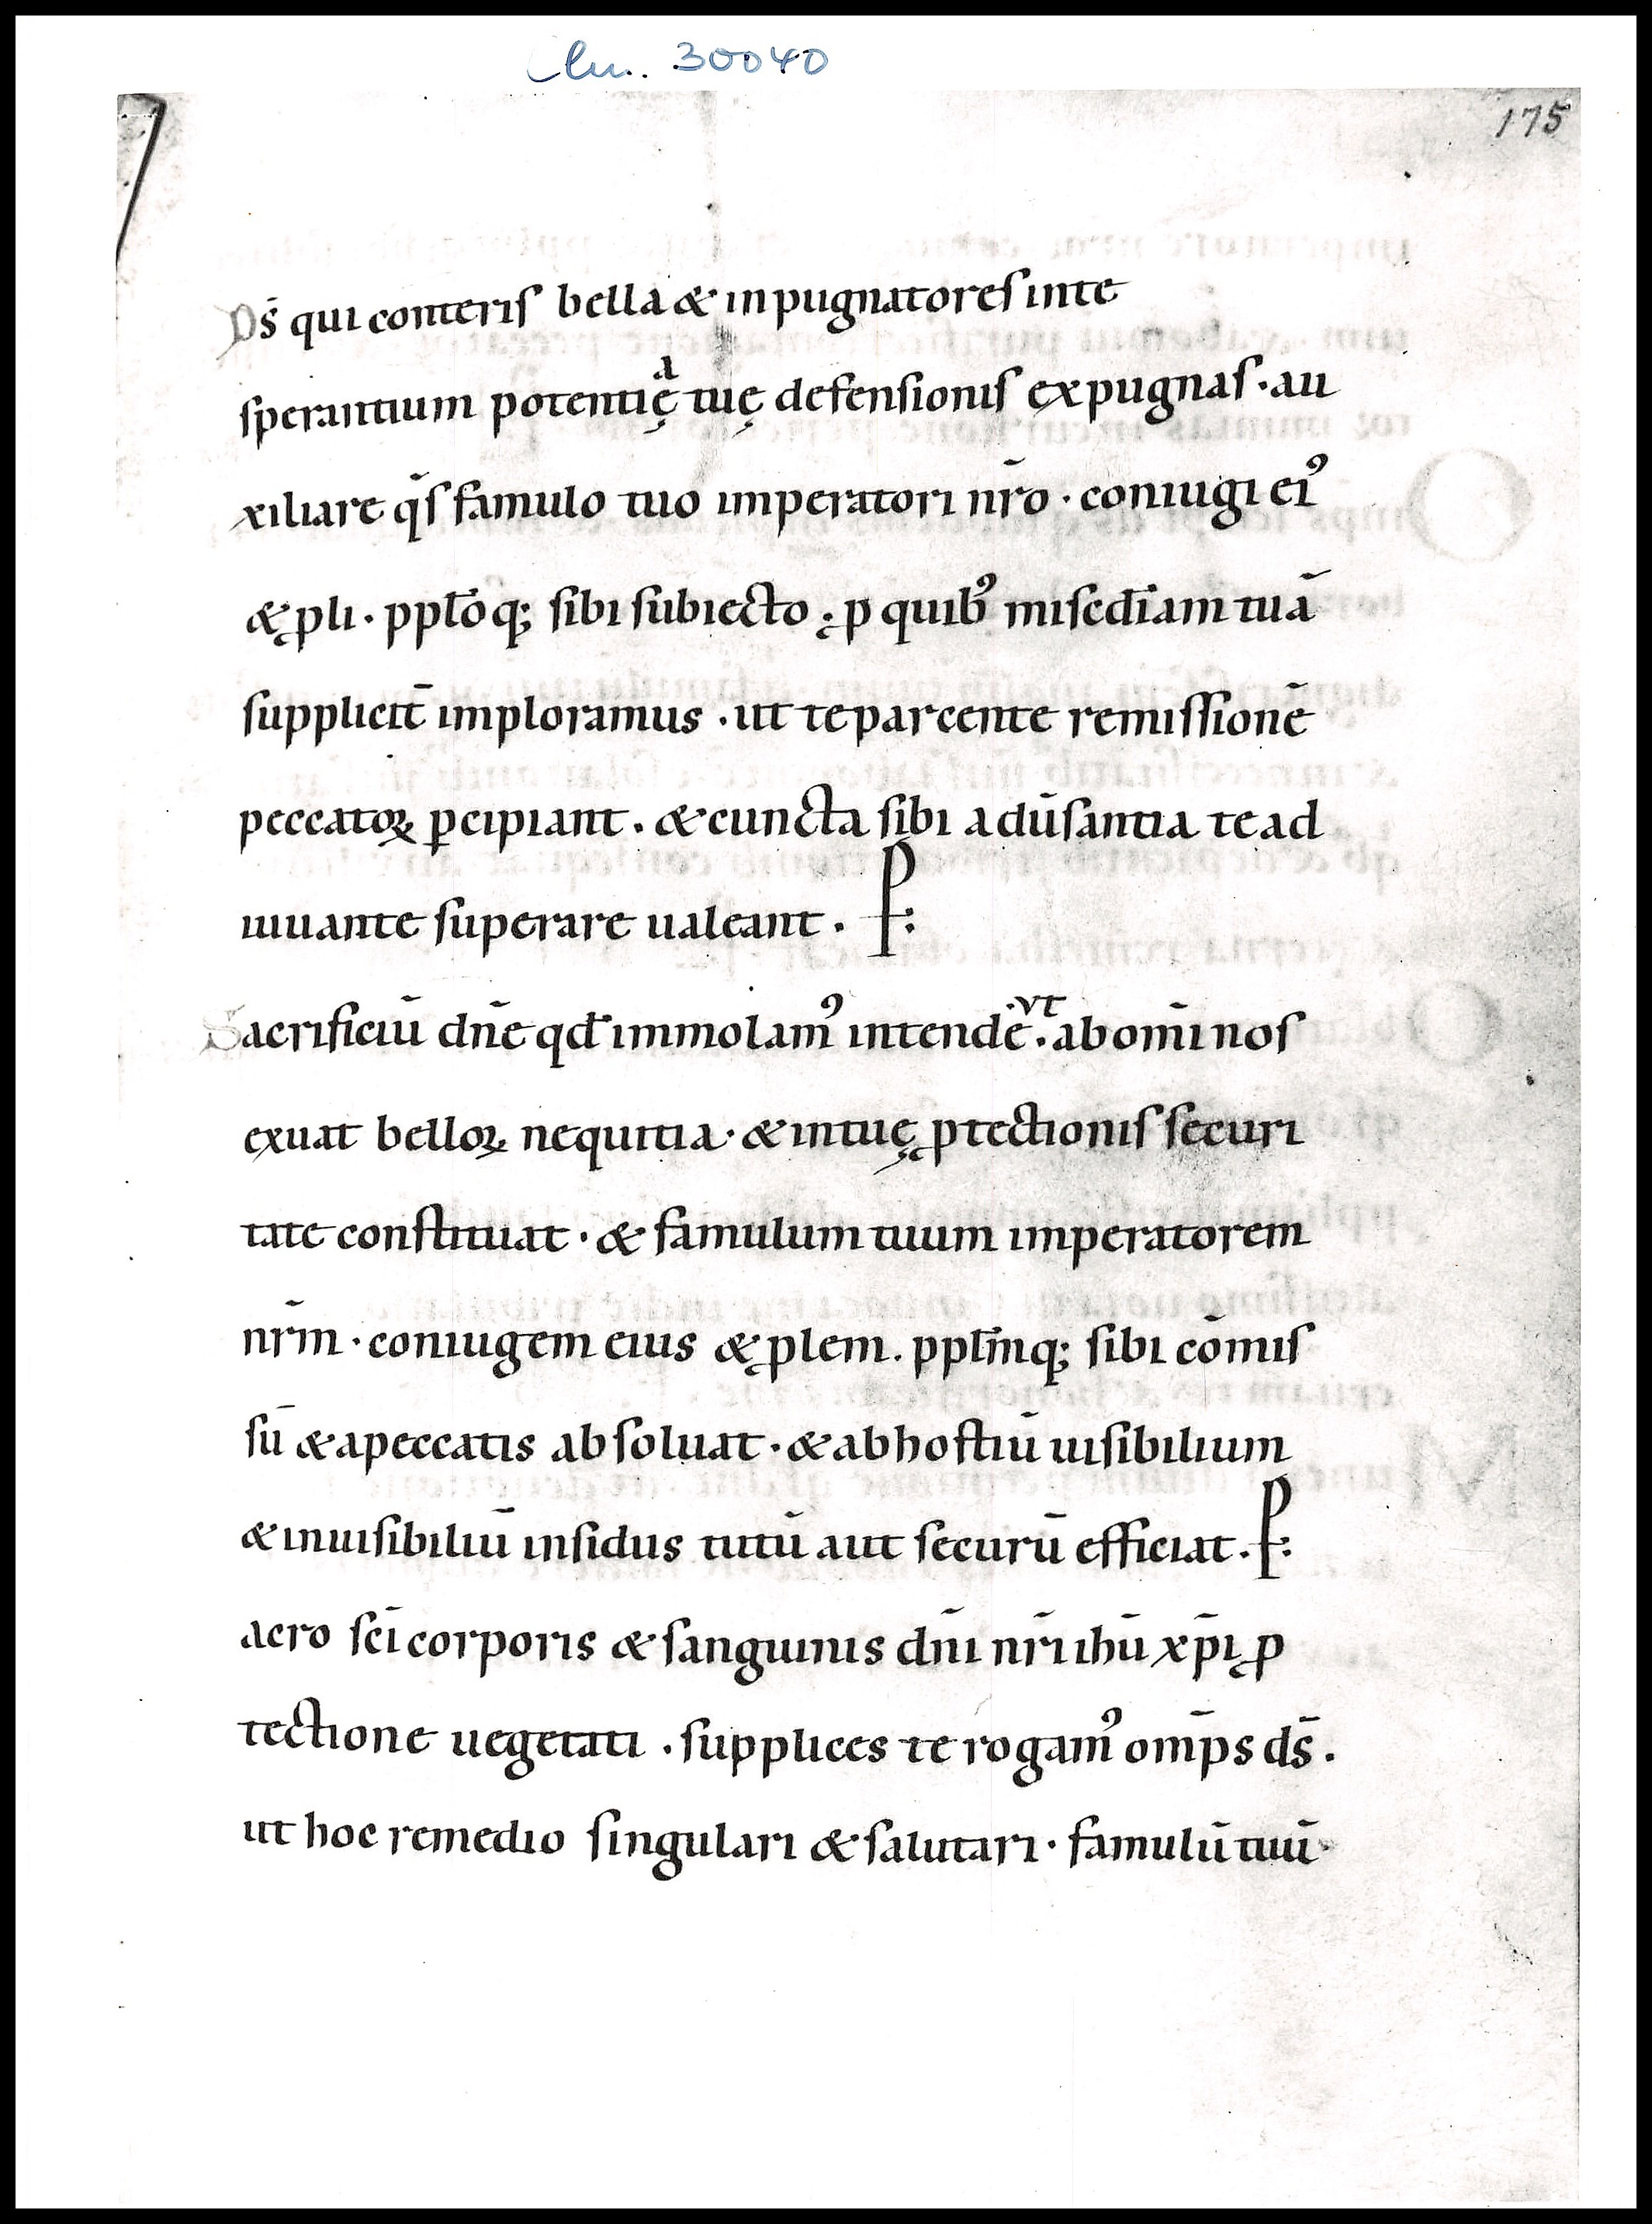 Clm. 30040
175
Ds̄ qui conteris bella & inpugnatores inte
sperantium potentię a tuę defensionis expugnas · au
xiliare q̄s famulo tuo imperatori nr̄o · coniugi ei᾿
& ꝓli · ppl̄o q; sibi subiecto · ꝓ quib᾿ miscd̄iam tuā
supplicit̄ imploramus · ut te parcente remissionē
peccatoꝝ ꝑcipiant · & cuncta sibi adūsantia te ad
iuuante superare ualeant · P:
Sacrificiū dn̄e qđ immolam᾿ intendē · vt ab om̄i nos
exuat belloꝝ nequitia · & in tuę ꝓtectionis securi
tate constituat · & famulum tuum imperatorem
nr̄m · coniugem eius & ꝓlem · ppl̄mq; sibi cōmis
sū & a peccatis absoluat · & ab hostiū uisibilium
& inuisibiliū insidiis tutū aut securū efficiat · P:
acro sc̄i corporis & sanguinis dn̄i nr̄i ihū xp̄i ꝓ
tectione uegetati · supplices te rogam᾿ om̄ps ds̄ ·
ut hoc remedio singulari & salutari · famulū tuū